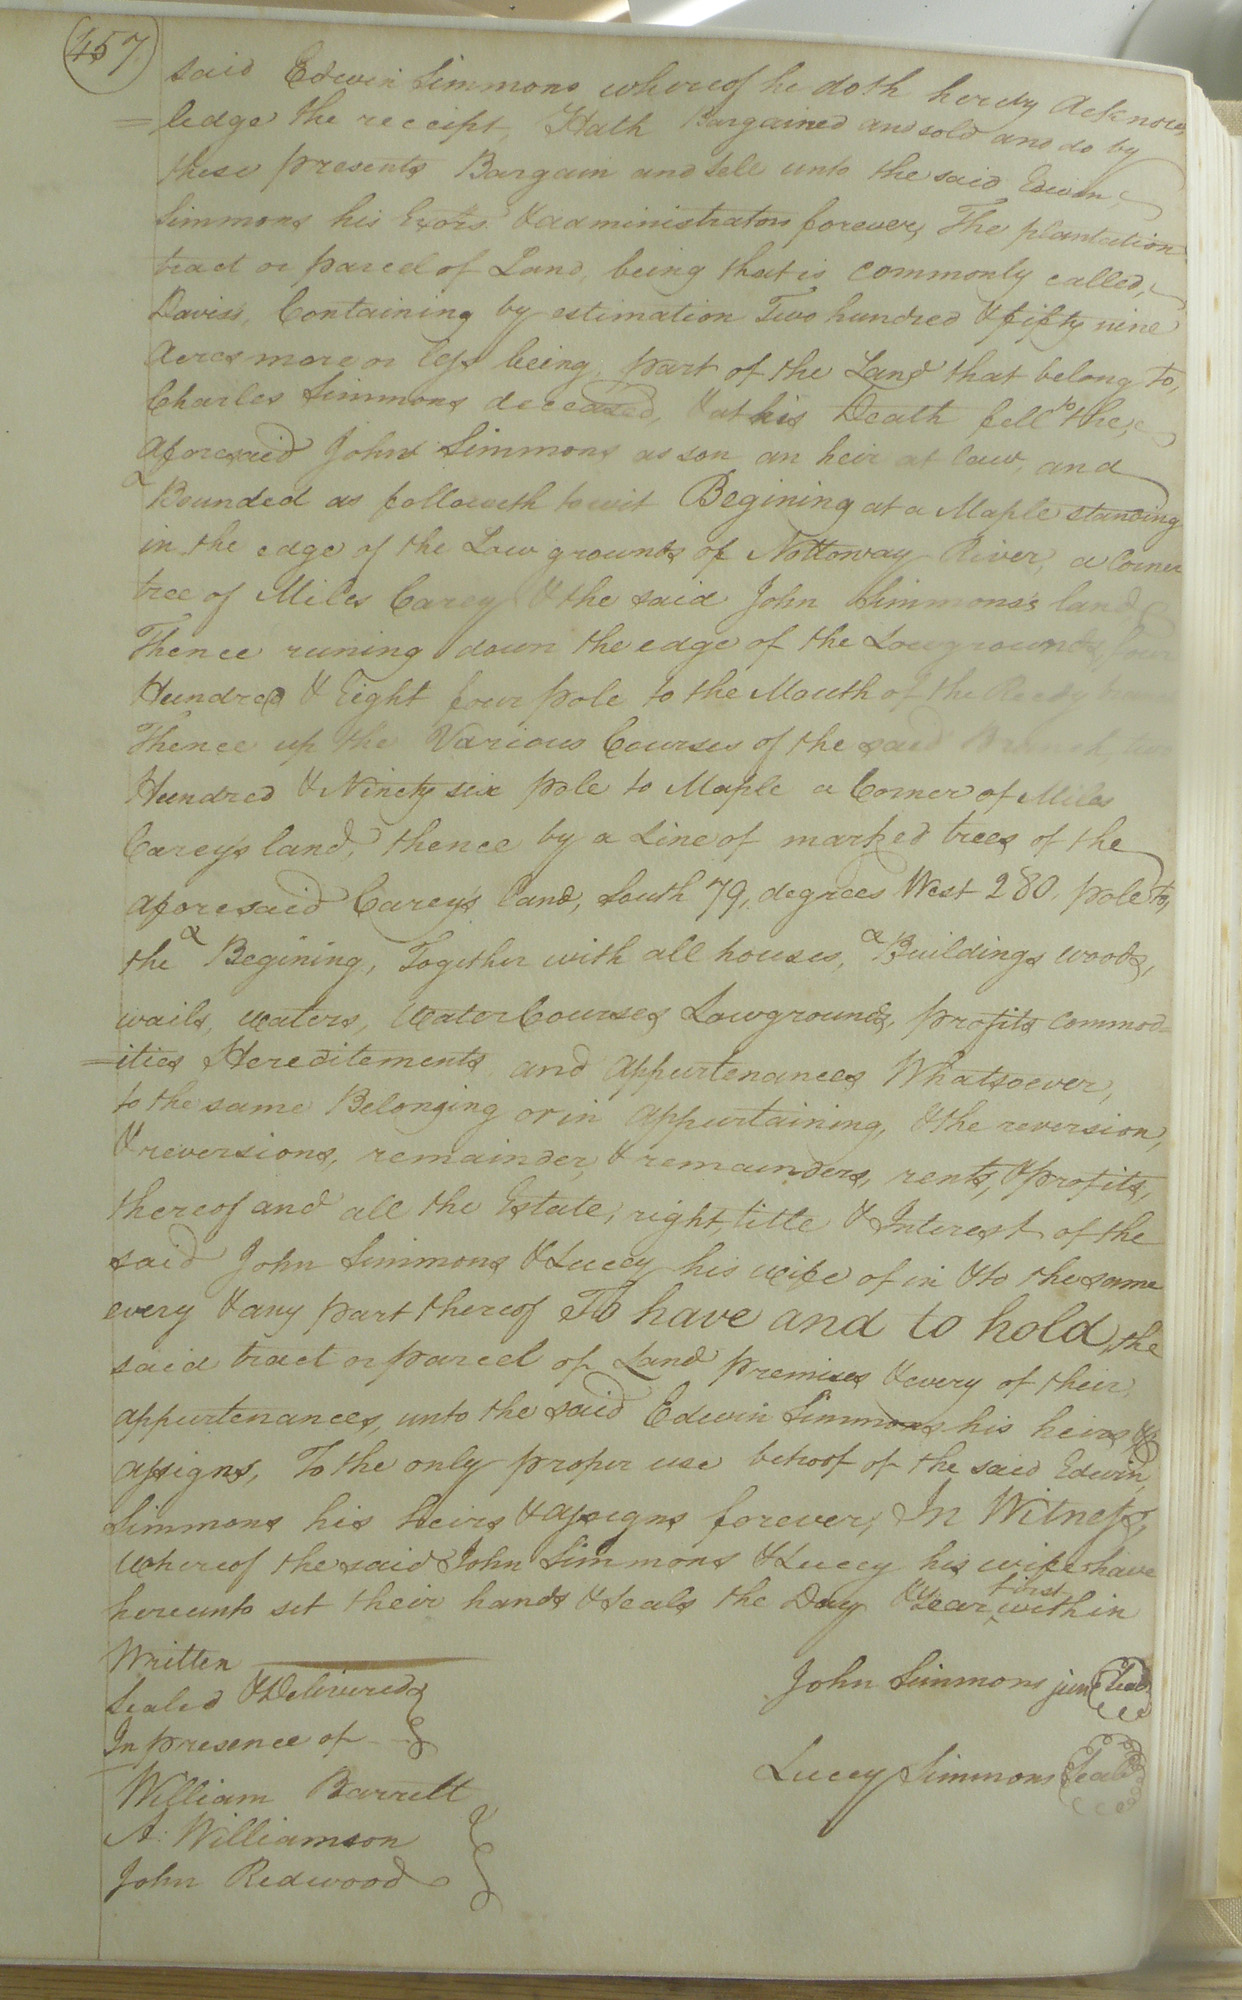 457
said Edwin Simmons whereof he doth hereby Acknow
=ledge the receipt, Hath Bargained and sold and do by
these presents Bargain and Sell unto the said Edwin
Simmons his Exors. & administrators forever, The plantation
tract or parcel of Land, being that is commonly called,
Davis's, Containing by estimation Two hundred & fifty nine
Acres more or less being part of the Land that belong to,
Charles Simmons deceased, & at his Death fell to the,
aforesaid John Simmons as son an heir at law, and
Bounded as followeth towit Begining at a Maple standing
in the edge of the Low grounds of Nottoway River, a Corner
tree of Miles Carey & the said John Simmons's land
Thence runing down the edge of the Lowgrounds, four
Hundred & Eight four pole to the Mouth of the Reedy
Thence up the Various Courses of the said Branch, two
Hundred & Ninety six pole to Maple a Corner of Miles
Careys land, thence by a Line of marked trees of the
aforesaid Carey's land, South 79, degrees West 280. pole to,
the Begining, Together with all houses, Buildings woods,
wails, waters, Water Courses Lowgrounds, profits commod=
=ities Hereditements and appurtenances Whatsoever,
to the same Belonging or in appurtaining, & the reversion,
& reversions, remainder, & remainders, rents, & profits,
thereof and all the Estate, right, title & Interest of the
said John Simmons & Luccy his wife of in & to the same
every & any part thereof To have and to hold, the
said tract or parcel of Land premises & every of their
appurtenances, unto the said Edwin Simmons his heirs &
assigns, To the only proper use behoof of the said Edwin
Simmons his heirs & assigns forever, In Witness,
Whereof the said John Simmons & Luccy his wife have
hereunto set their hands & Seals the Day & Year first within
Written
Sealed & Delivered
In presence of
John Simmons jun Seal
Luccy Simmons Seal
William Barrett
A: Williamson
John Redwood